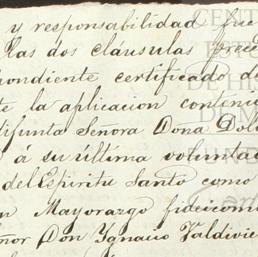 y responsabilidad fue
llas dos cláusulas prece
pondiente certificado de
te la aplicacion continu
difunta Señora Doña Dolo
á su última voluntad
del Espiritu Santo como
n Mayorazgo fideicomi
ñor Don Ygnacio Valdivie